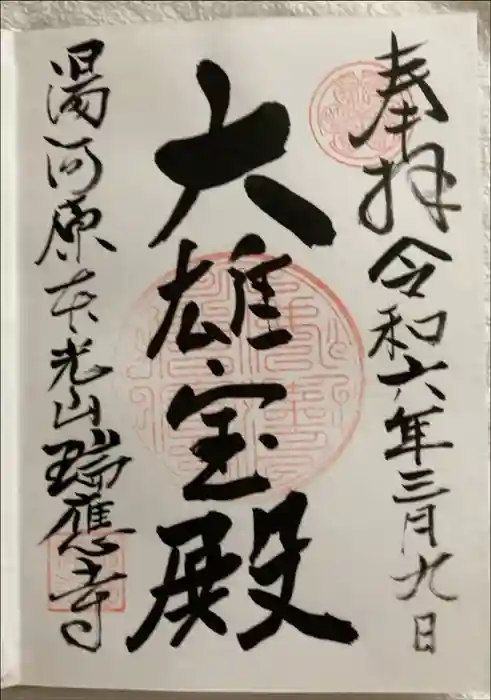 奉拝 令和六年三月九日
大雄宝殿
湯河原 本光山 瑞應寺